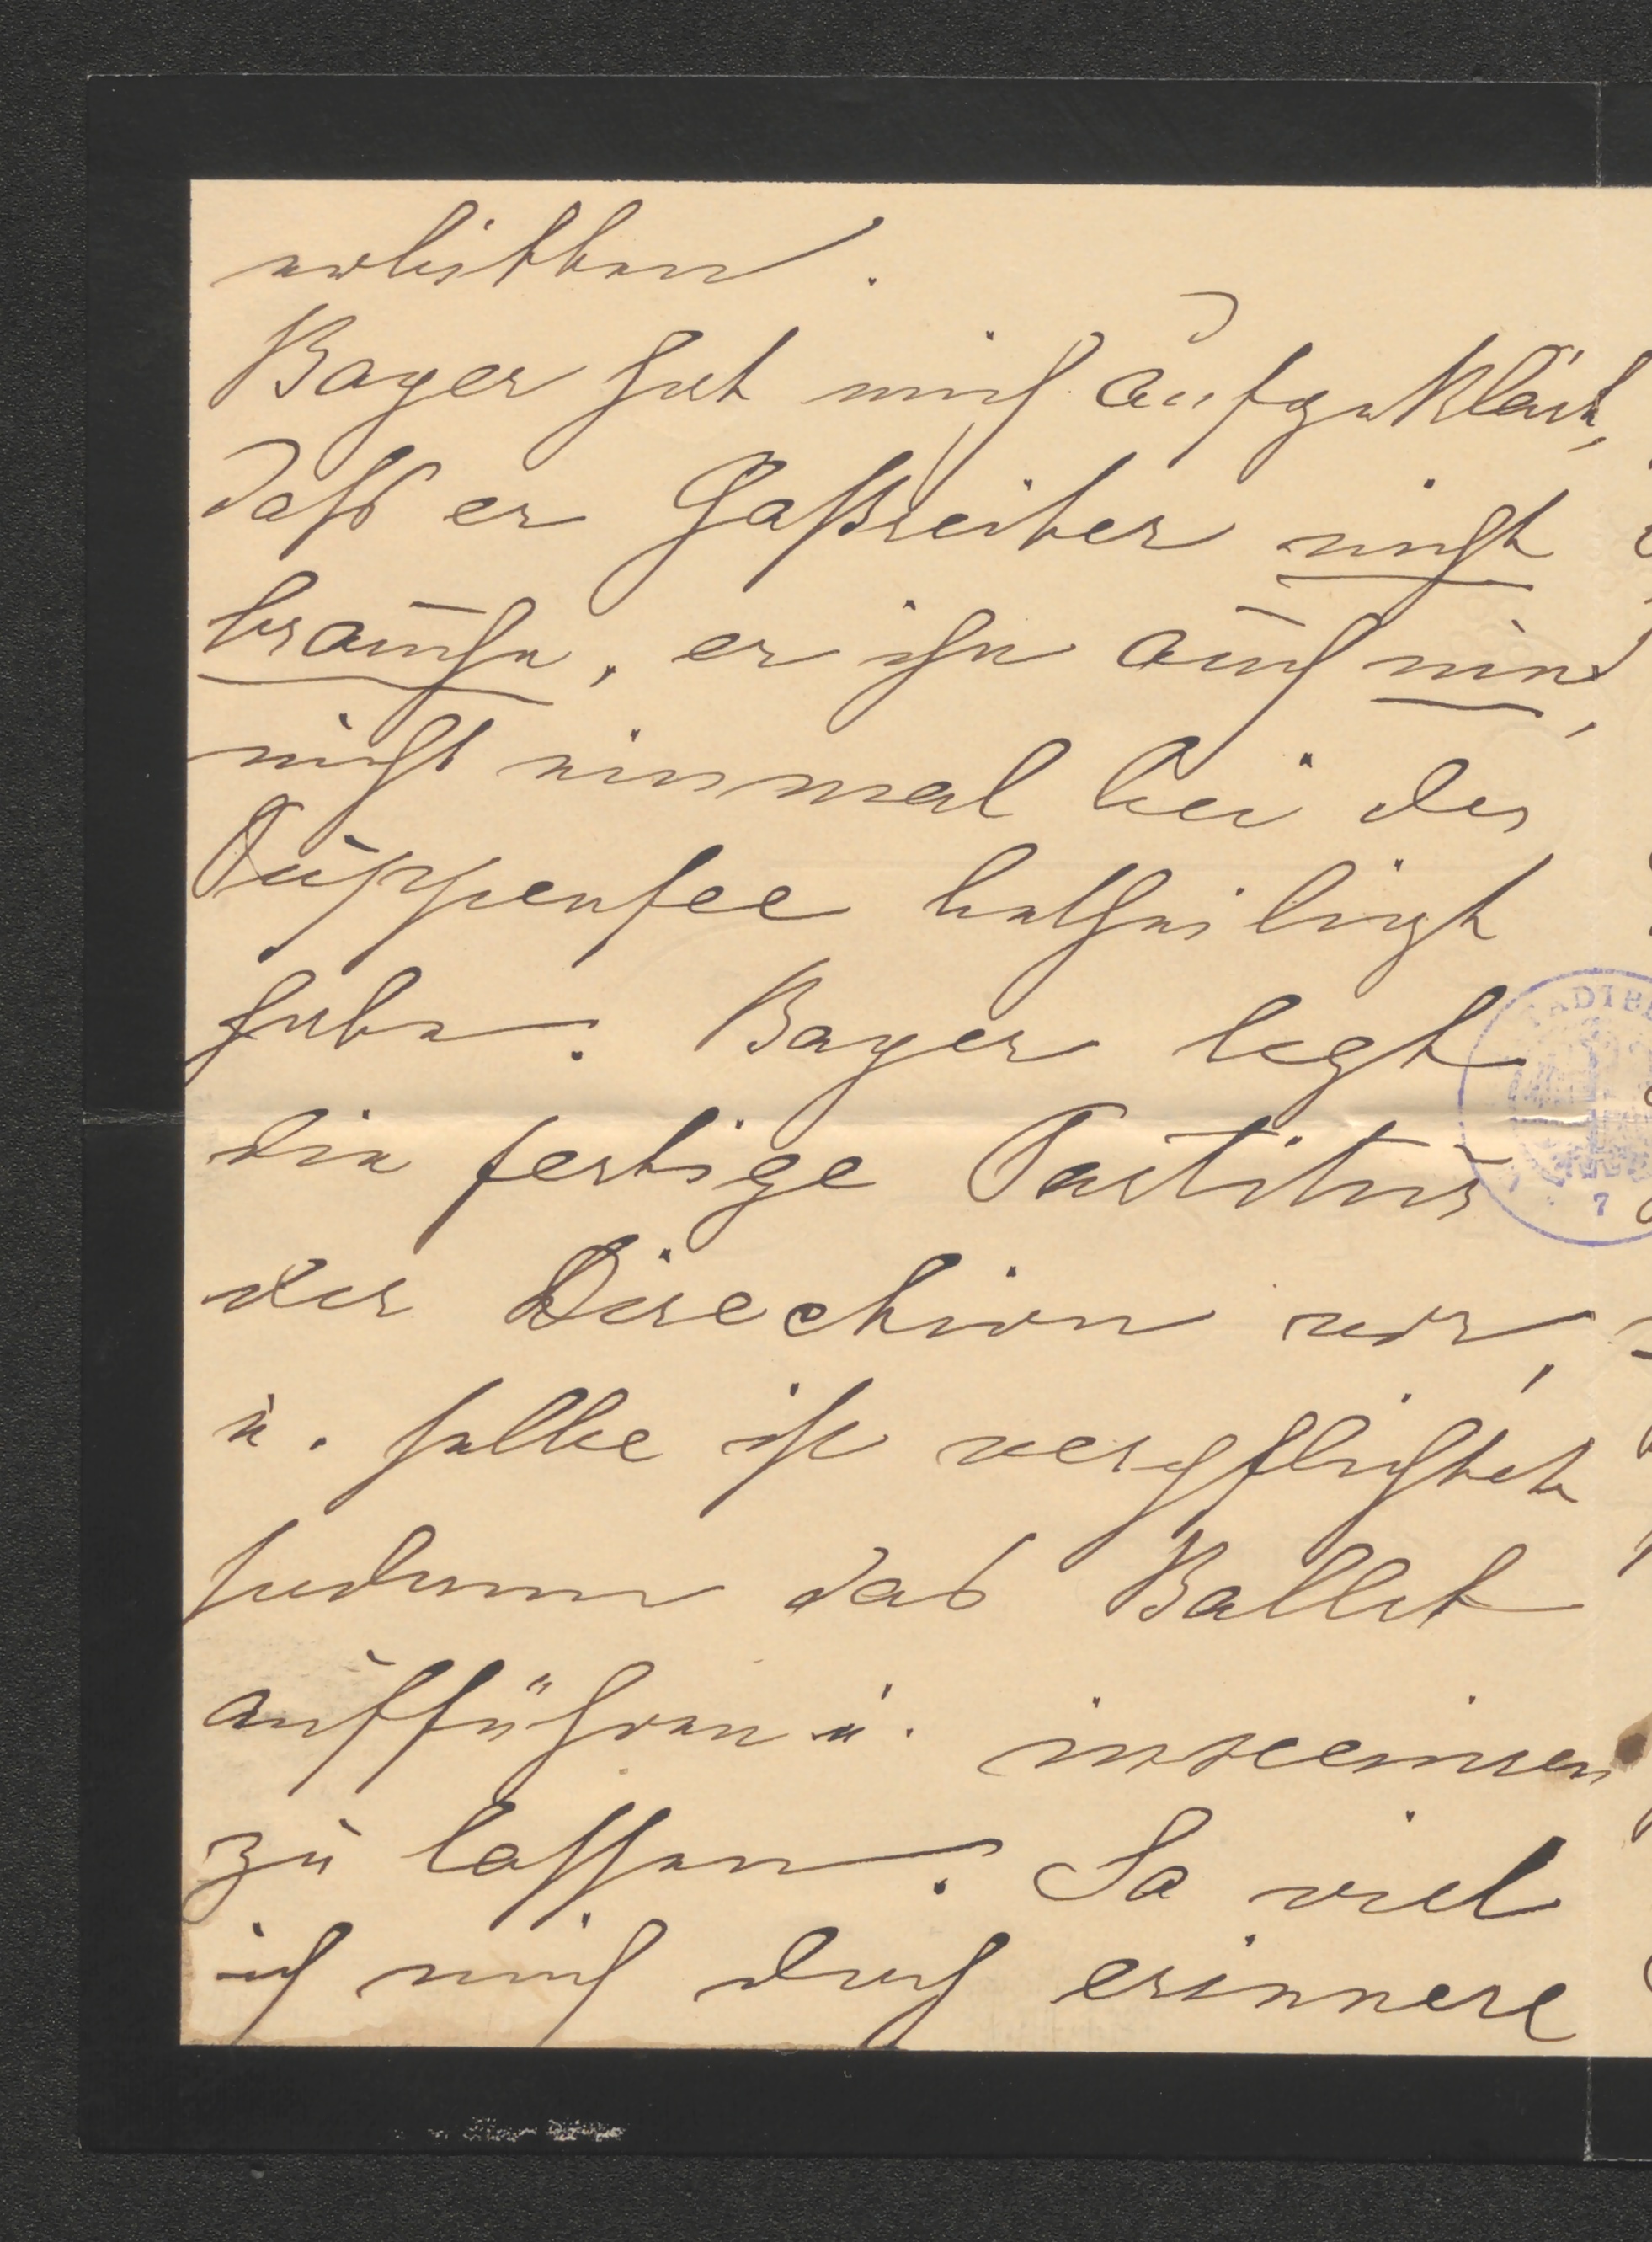 erbitten.
Bayer hat mich aufgeklärt,
daß er Gaßreiter nicht
brauche, er ihn auch nie,
nicht einmal bei der
Puppenfee betheiligt
habe. Bayer legt
die fertige Partitur
der Direction vor,
u. selbe ist verpflichtet
sodann das Ballet
aufführen u. insceniren
zu lassen. So viel
ich mich doch erinnere
STADTBI
7